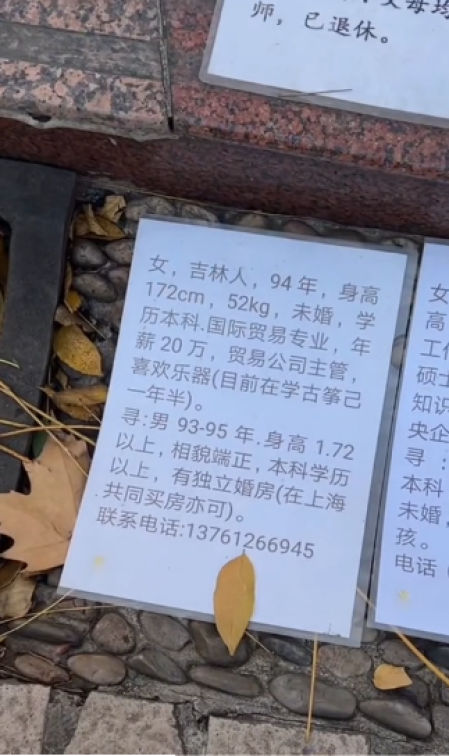 师，已退休。
女，吉林人，94年，身高
172cm，52kg，未婚，学
历本科.国际贸易专业，年
薪20万，贸易公司主管，
喜欢乐器(目前在学古筝己
一年半)。
寻:男 93-95 年.身高 1.72
以上，相貌端正，本科学历
以上，有独立婚房(在上海
共同买房亦可)。
联系电话:13761266945
女
高
工作
硕士
知识
央企
寻：
本科
未婚，
孩。
电话